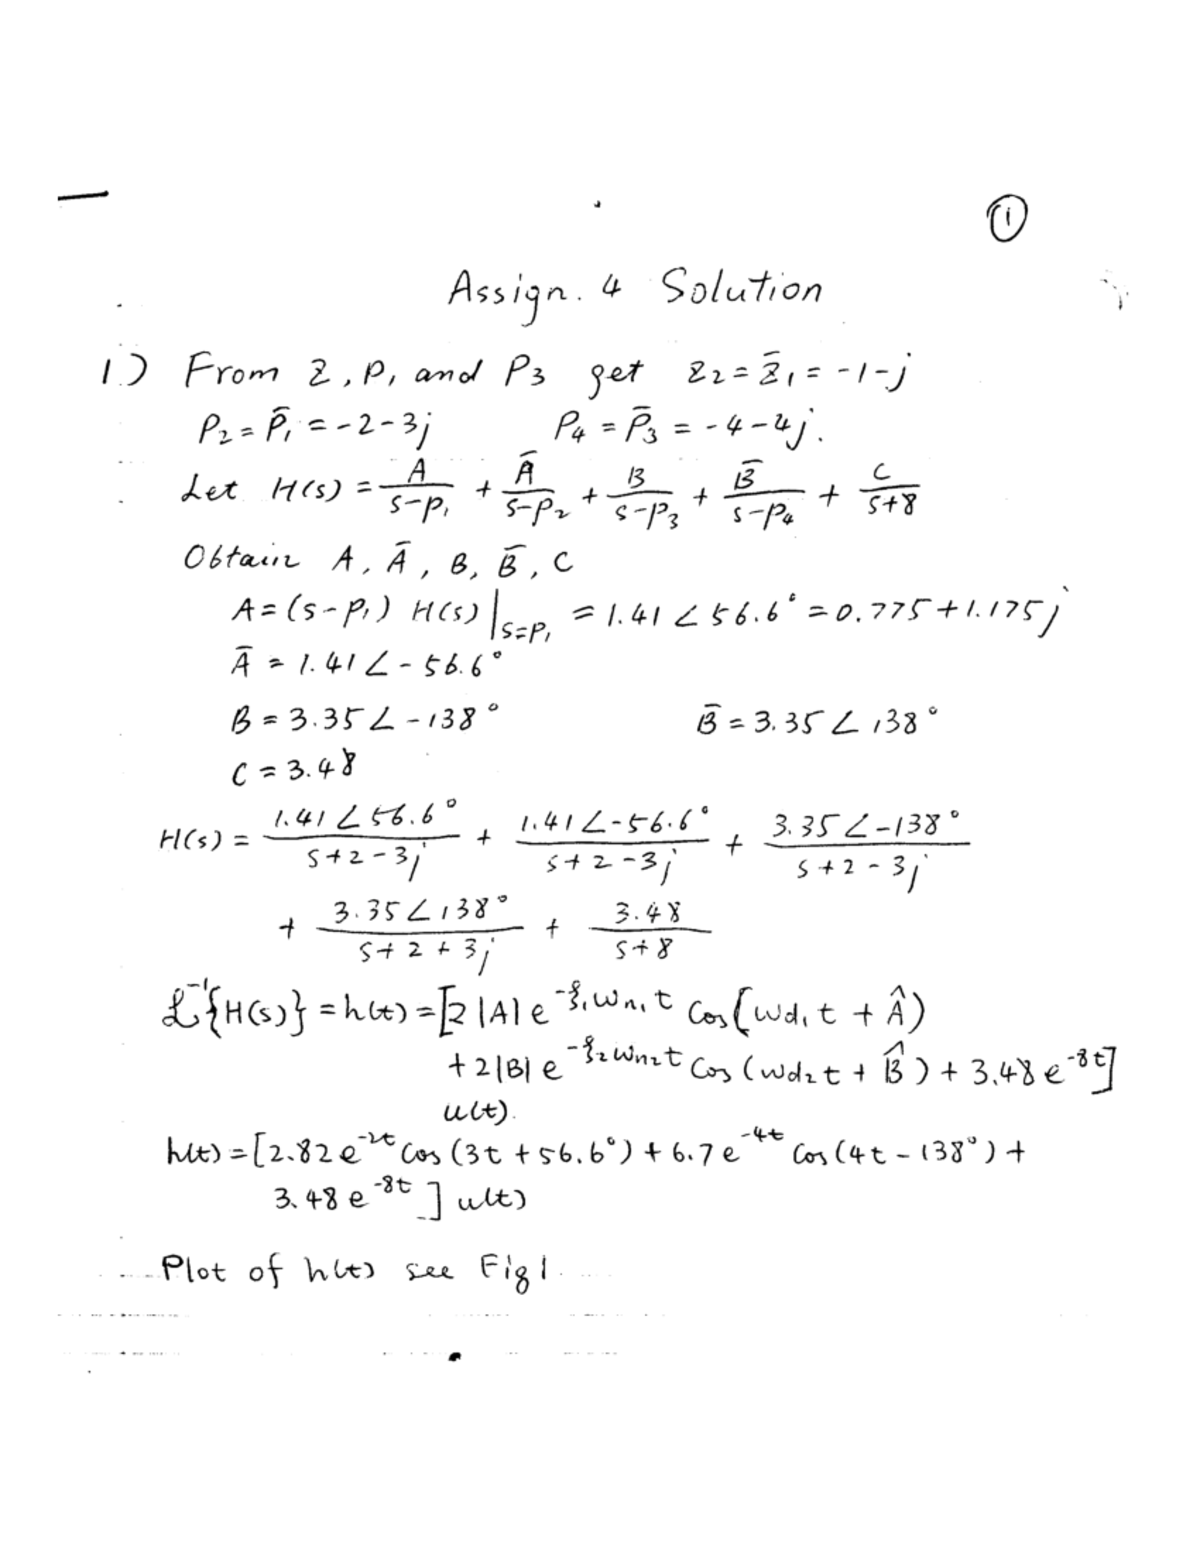 ①
Assign. 4 Solution
1.) From Z1, P1 and P3 get Z2 = Z̄1 = -1-j
P2 = P̄1 = -2-3j P4 = P̄3 = -4-4j.
Let H(s) = A/(s-P1) + Ā/(s-P2) + B/(s-P3) + B̄/(s-P4) + C/(s+8)
Obtain A, Ā, B, B̄, C
A = (s-P1) H(s)|s=P1 = 1.41∠56.6° = 0.775+1.175j
Ā = 1.41∠-56.6°
B = 3.35∠-138° B̄ = 3.35∠138°
C = 3.48
H(s) = 1.41∠56.6°/(s+2-3j) + 1.41∠-56.6°/(s+2-3j) + 3.35∠-138°/(s+2-3j)
+ 3.35∠138°/(s+2+3j) + 3.48/(s+8)
ℒ⁻¹{H(s)} = h(t) = [2|A|e^(-ξ1ωn1t) Cos(ωd1t + Â)
+2|B|e^(-ξ2ωn2t) Cos(ωd2t + B̂) + 3.48e^(-8t)]
u(t).
h(t) = [2.82e^(-2t) Cos(3t+56.6°) + 6.7e^(-4t) Cos(4t-138°) +
3.48e^(-8t)] u(t)
Plot of h(t) see Fig 1.